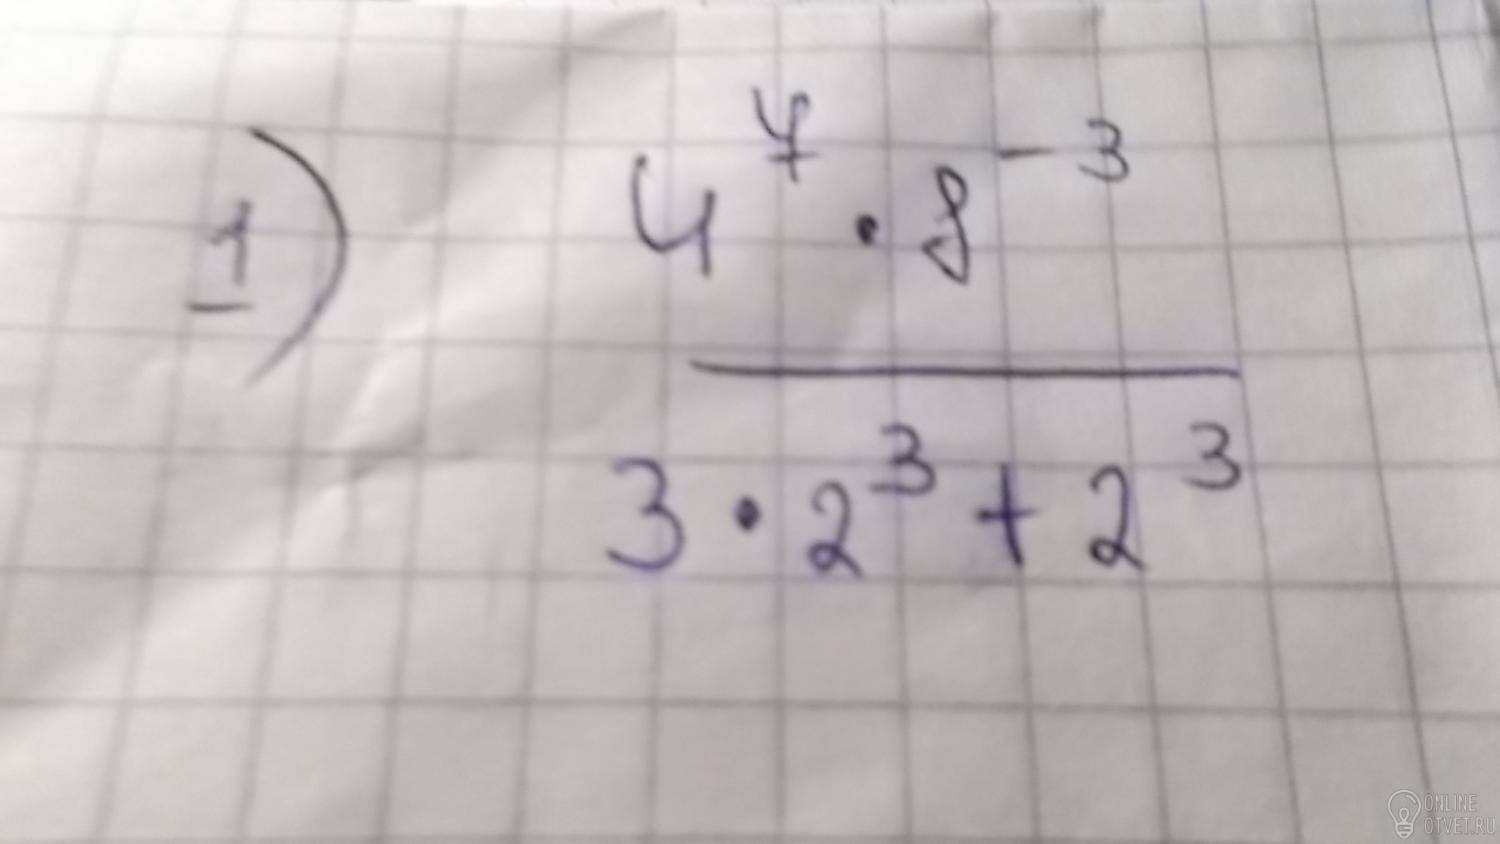 1) 4⁴ · 8⁻³
3 · 2³ + 2³
ONLINE
OTVET.RU